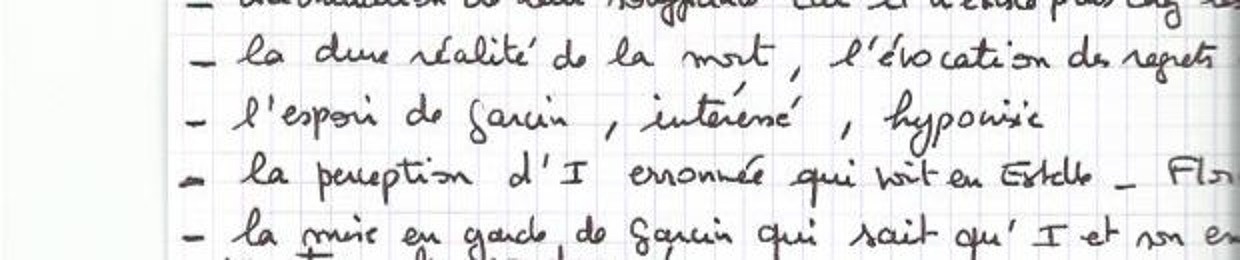 - la dure réalité de la mort, l'évocation des regrets
- l'espoir de Garcin, intéressé, hypocrisie
- la perception d'I erronnée qui voit en Estelle - Flor
- la mise en garde de Garcin qui sait qu'I et son en